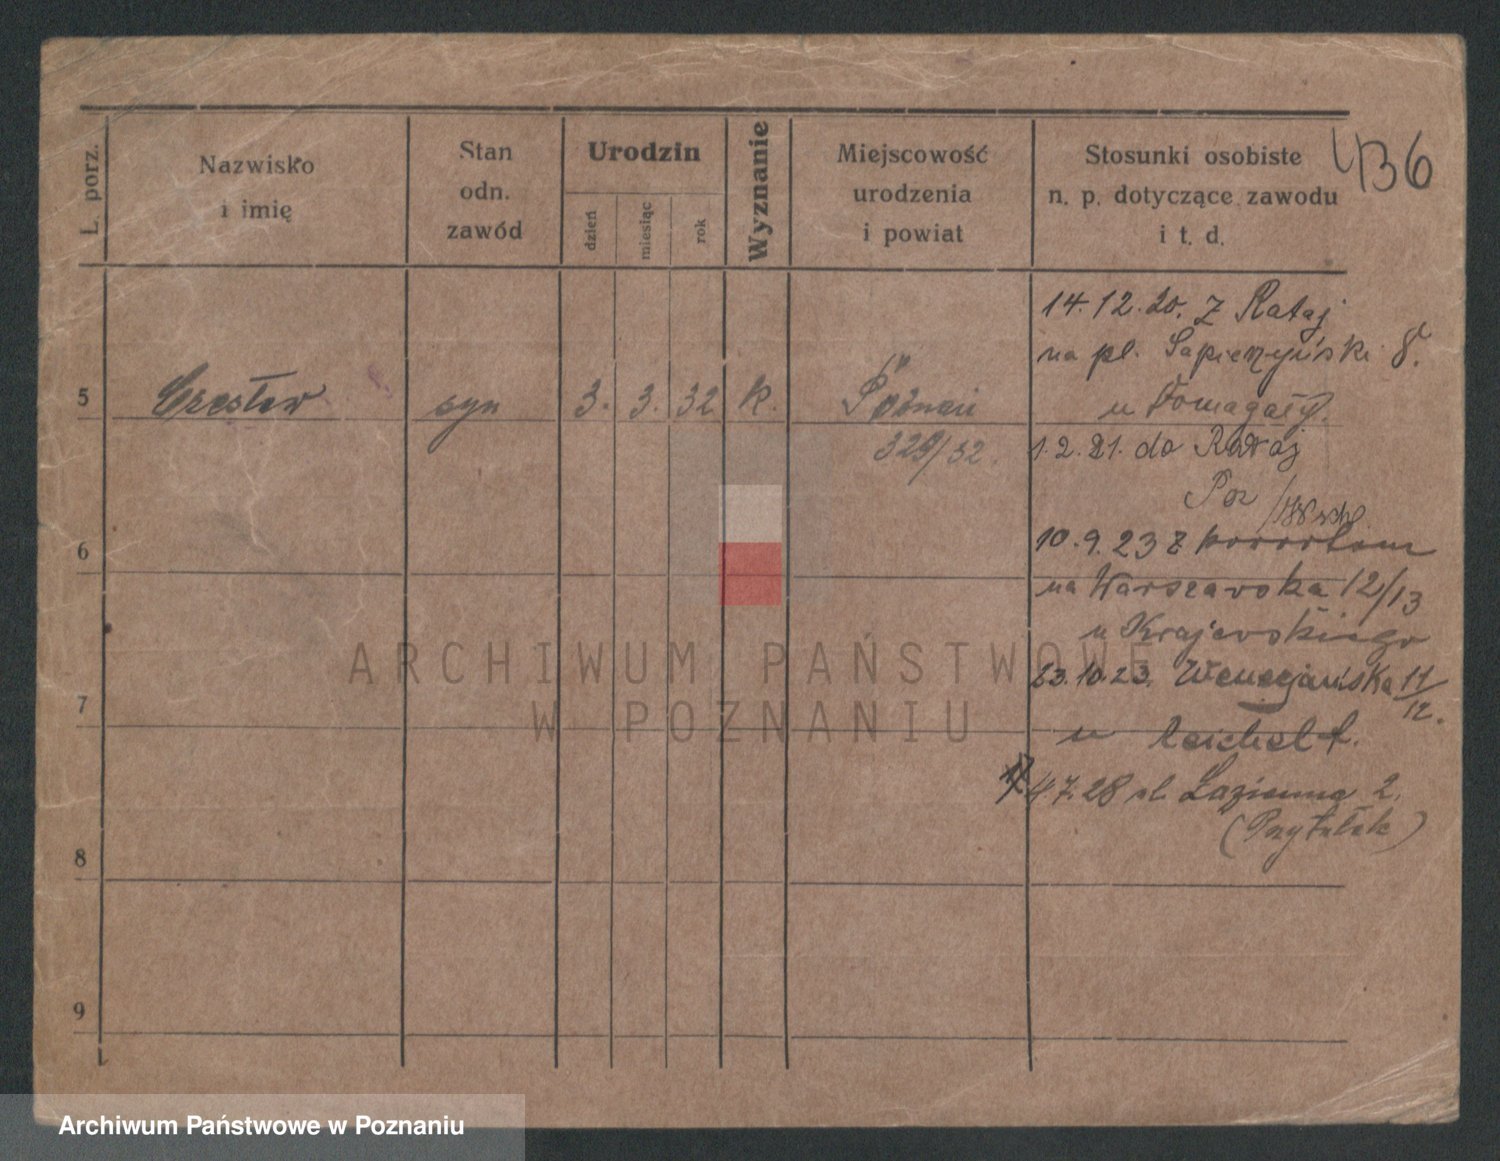 436
L. porz.
Nazwisko
i imię
Stan
odn.
zawód
Urodzin
dzień
miesiąc
rok
Wyznanie
Miejscowość
urodzenia
i powiat
Stosunki osobiste
n. p. dotyczące zawodu
i t. d.
14.12.20. z Rataj
na pl. Sapieżyński 8.
5 Czesław syn 3. 3. 32 k. Poznań u
329/32.
1.2.21. do Rataj
Poz
6
10.9.23 z
na Warszawska 12/13
u Krajewskiego
23.10.23. Wenecjańska 11/12.
7
u
4.7.28 ul. Łazienna 2.
(Przytułek)
8
9
ARCHIWUM PAŃSTWOWE
W POZNANIU
Archiwum Państwowe w Poznaniu